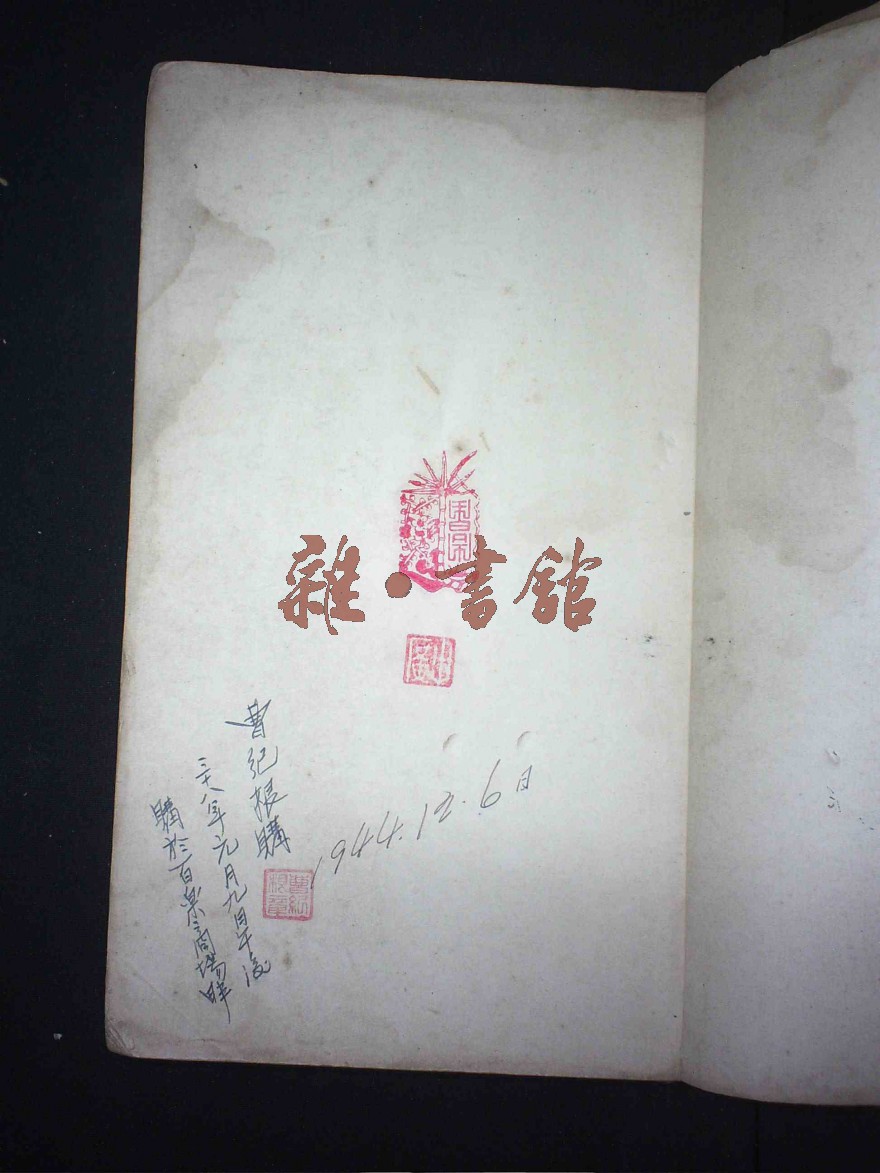 雜·書館
曹紀根購
三十八年元月九日午後
購於百樂商場畔
1944.12.6日